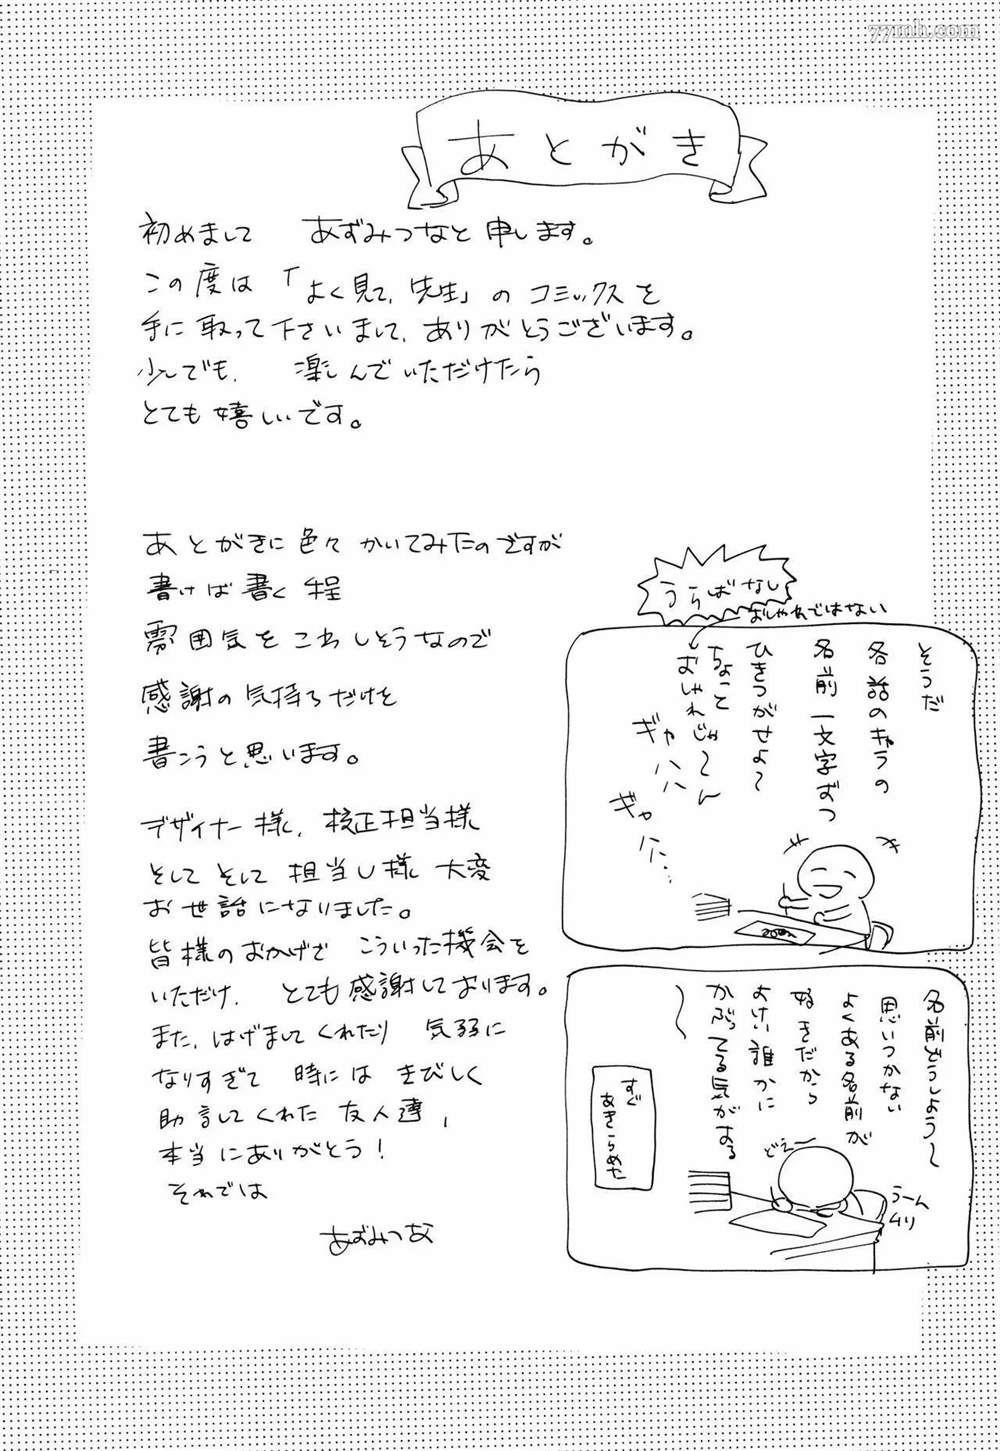 あとがき
初めまして あずみつなと申します。
この度は「よく見て、先生」のコミックスを
手に取って下さいまして、ありがとうございます。
少しでも、楽しんでいただけたら
とても嬉しいです。
あとがきに色々かいてみたのですが
書けば書く程
雰囲気をこわしそうなので
感謝の気持ちだけを
書こうと思います。
デザイナー様、校正担当様
そしてそして担当U様 大変
お世話になりました。
皆様のおかげで こういった機会を
いただけ、とても感謝しております。
また、はげましてくれたり 気弱に
なりすぎて 時には きびしく
助言してくれた 友人達、
本当にありがとう!
それでは
あずみつな
うらばなし
おしゃれではない
そうだ
各話のキャラの
名前一文字ずつ
ひきつがせよ〜
ちょっと
おしゃれじゃ〜ん
ギャハハハ
ギャハハ…
名前どうしよう〜
思いつかない
よくある名前が
好きだから
よけい誰かに
かぶってる気がする
〜
どえ〜
うーん
ムリ
すぐ
あきらめた
77mh.com